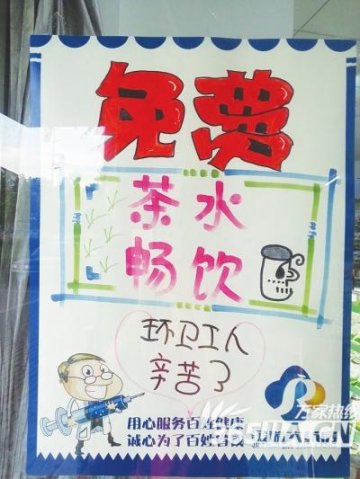 免费
茶水
畅饮
环卫工人
辛苦了
用心服务百姓健康
诚心为了百姓
万家热线